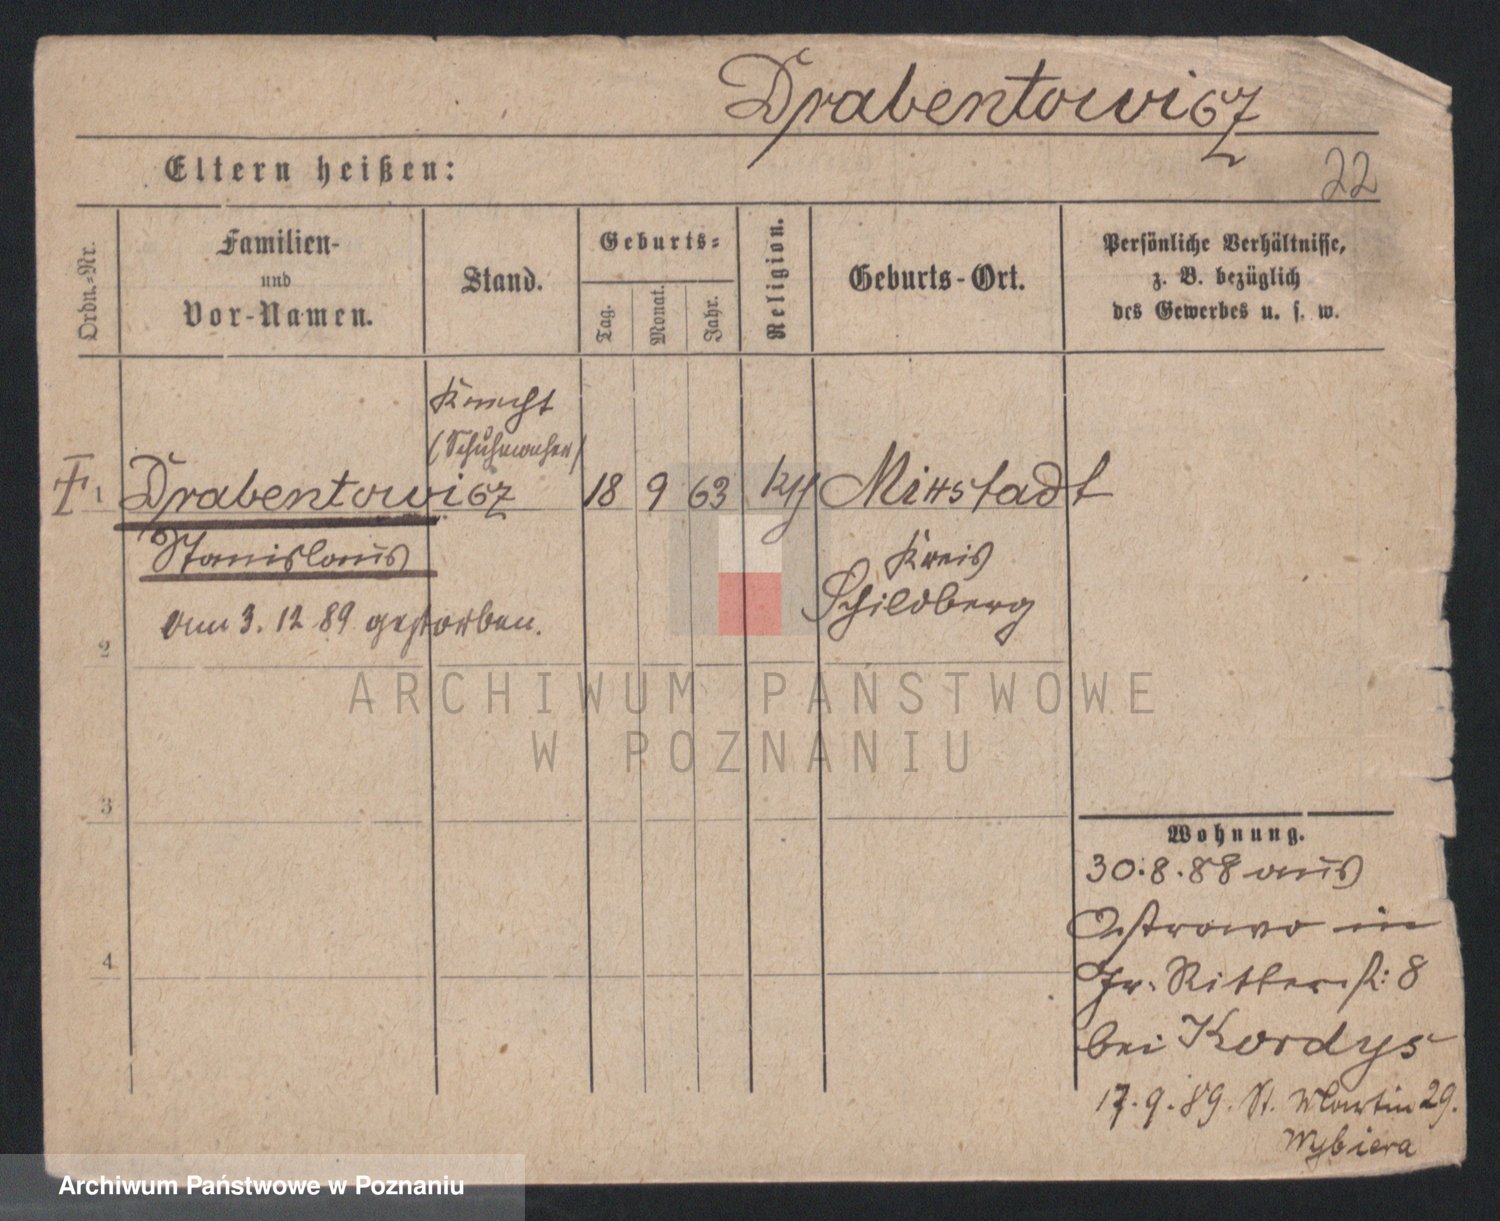 Drabentowicz
Eltern heißen:
22
Ordn.-Nr.
Familien-
und
Vor-Namen.
Stand.
Geburts-
Tag.
Monat.
Jahr.
Religion.
Geburts-Ort.
Persönliche Verhältnisse,
z. B. bezüglich
des Gewerbes u. s. w.
Knecht
(Schuhmacher)
1 Drabentowicz 18 9 63 kth Mixstadt
Stanislaus
Kreis
Schildberg
am 3. 12 89 gestorben.
2
ARCHIWUM PAŃSTWOWE
W POZNANIU
3
Wohnung.
30.8.88 aus
Ostrowo in
Gr. Ritterst: 8
4
bei Kordys
17.9.89. St. Martin 29.
Wybiera
Archiwum Państwowe w Poznaniu